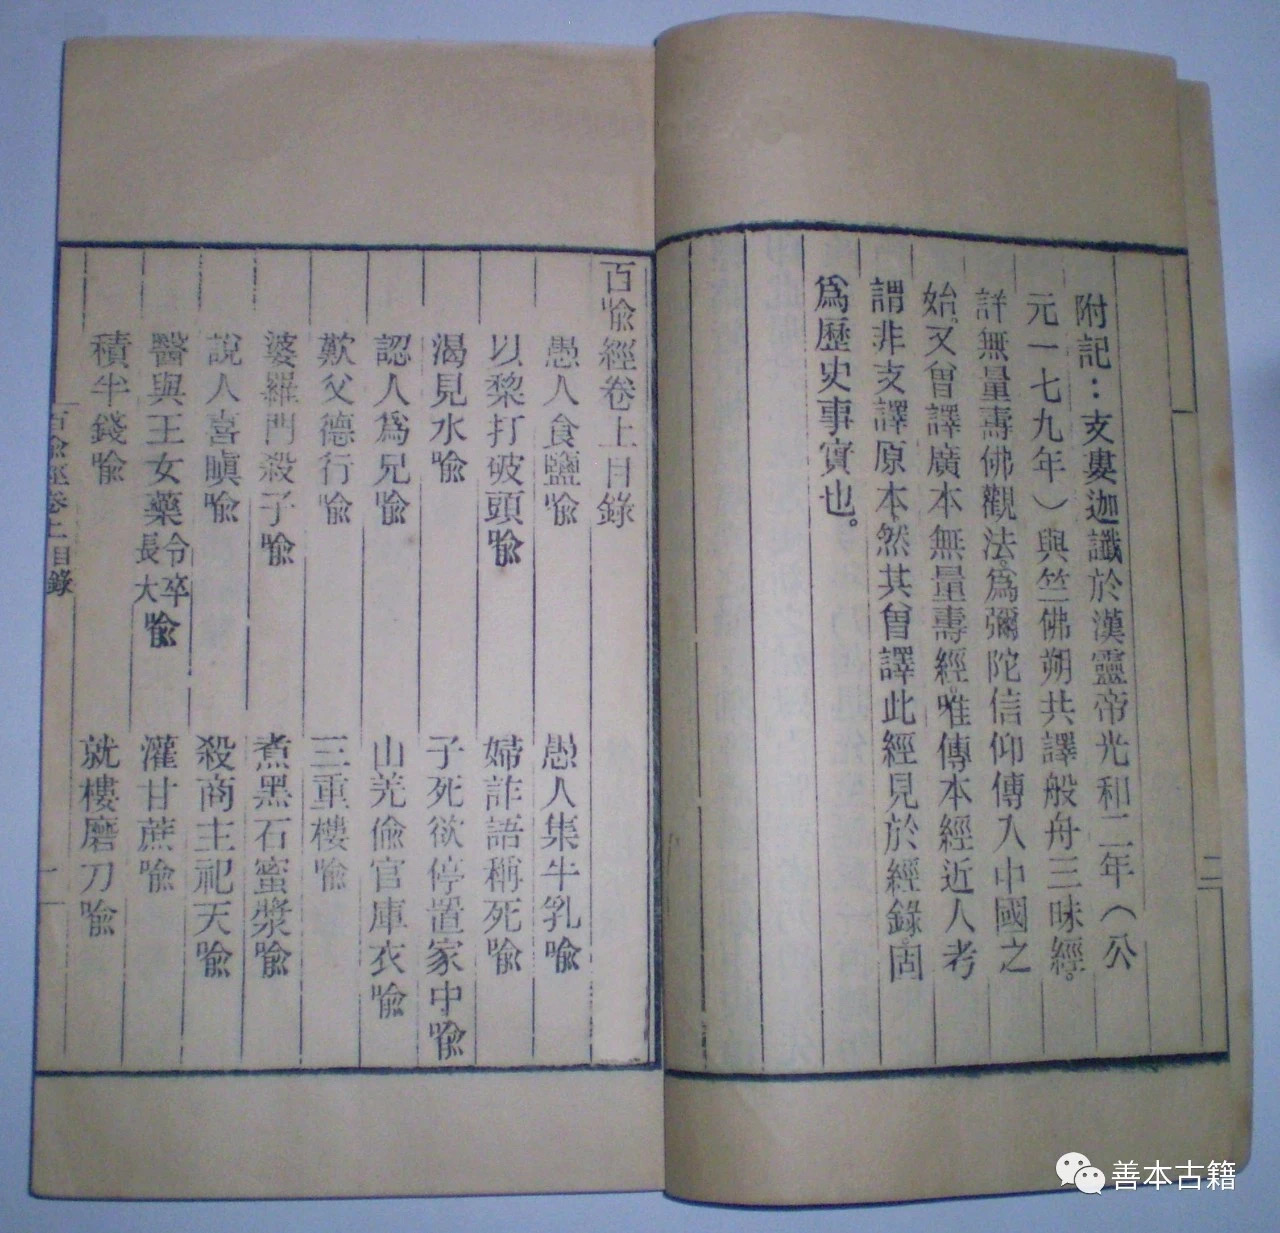 附記：支婁迦讖於漢靈帝光和二年（公
元一七九年）與竺佛朔共譯般舟三昧經。
詳無量壽佛觀法。為彌陀信仰傳入中國之
始。又曾譯廣本無量壽經。唯傳本經近人考
謂非支譯原本。然其曾譯此經見於經錄。固
為歷史事實也。
二
百喻經卷上目錄
愚人食鹽喻
愚人集牛乳喻
以黎打破頭喻
婦詐語稱死喻
渴見水喻
子死欲停置家中喻
認人為兄喻
山羌偷官庫衣喻
歎父德行喻
三重樓喻
婆羅門殺子喻
煮黑石蜜漿喻
說人喜瞋喻
殺商主祀天喻
醫與王女藥令卒長大喻
灌甘蔗喻
積半錢喻
就樓磨刀喻
百喻經卷上目錄
一
善本古籍